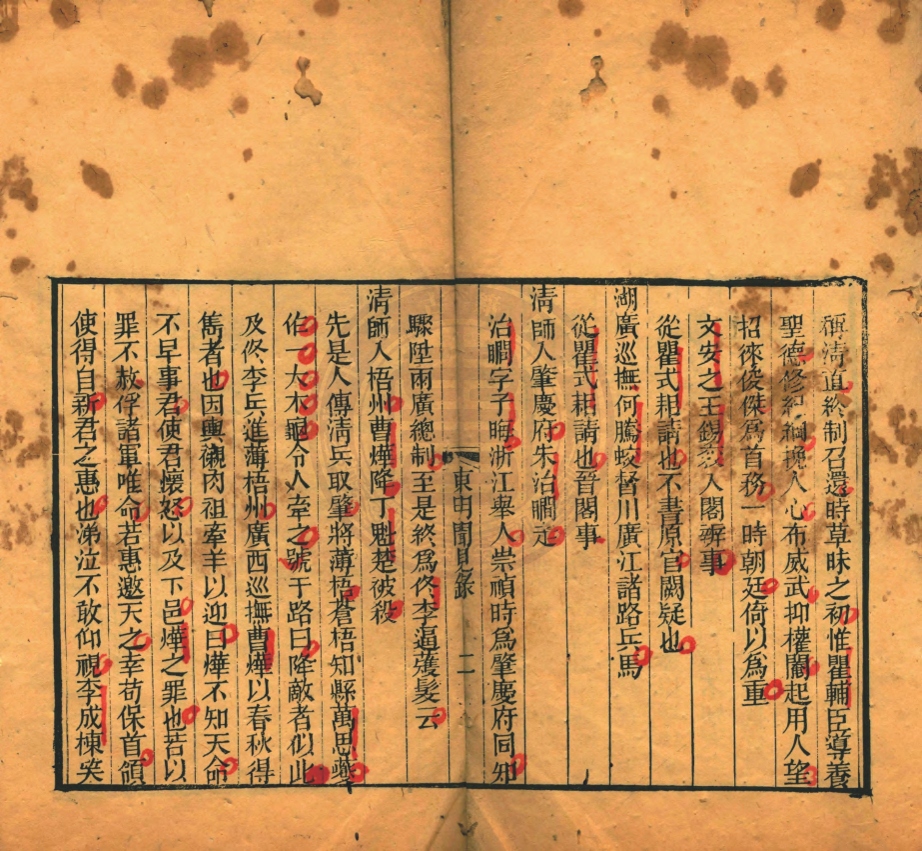 種清直終制召還時草昧之初惟瞿輔臣導養
聖德修紀綱挽人心布威武抑權閹起用人望
招徠俊傑爲首務一時朝廷倚以爲重
文安之王錫袞入閣辦事
從瞿式耜請也不書原官闕疑也
湖廣巡撫何騰蛟督川廣江諸路兵馬
從瞿式耜請也晉閣事
淸師入肇慶府朱治𢢼走
治𢢼字子晦浙江舉人崇禎時爲肇慶府同知
驟陞兩廣總制至是終爲佟李逼護髮云
東明聞見錄 二
淸師入梧州曹燁降丁魁楚被殺
先是人傳淸兵取肇將薄梧蒼梧知縣萬思夔
伯一大木龜令人牽之號于路曰降敵者似此
及佟李兵進薄梧州廣西巡撫曹燁以春秋得
雋者也因輿櫬肉袒牽羊以迎曰燁不知天命
不早事君使君懷怒以及下邑燁之罪也若以
罪不赦俘諸軍唯命若惠邀天之幸苟保首領
使得自新君之惠也涕泣不敢仰視李成棟笑